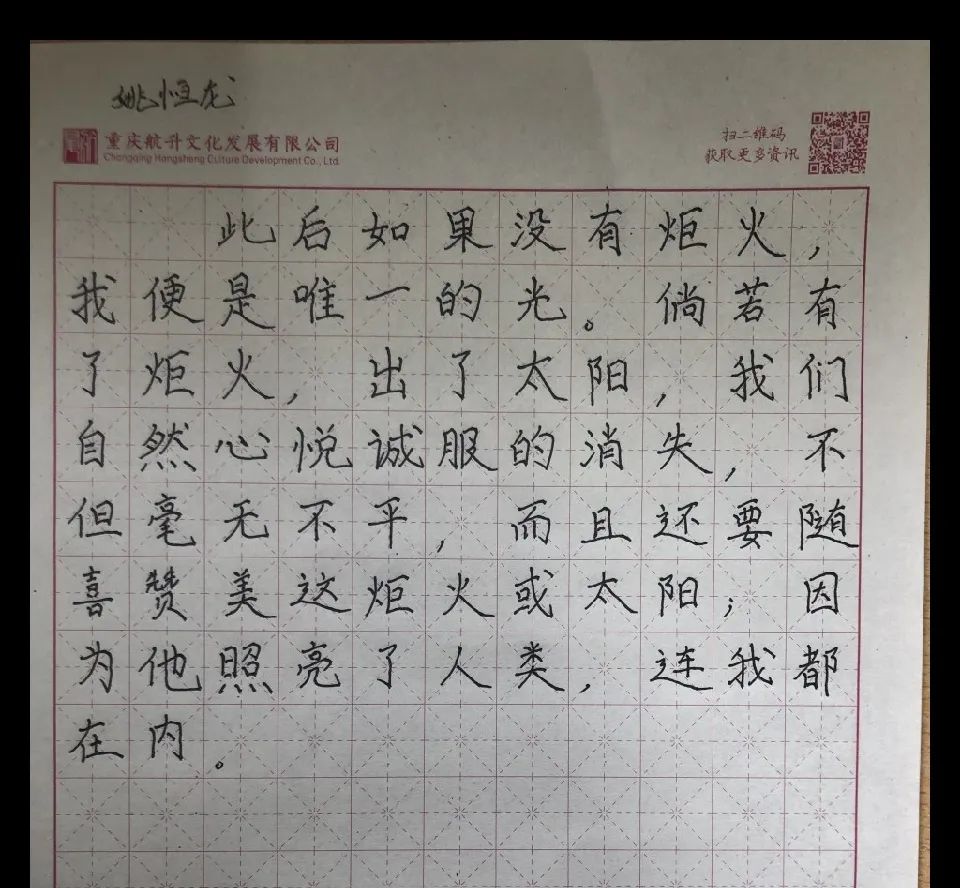 姚恒龙
重庆航升文化发展有限公司
Chongqing Hangsheng Culture Development Co., Ltd.
扫二维码
获取更多资讯
此后如果没有炬火，
我便是唯一的光。倘若有
了炬火，出了太阳，我们
自然心悦诚服的消失，不
但毫无不平，而且还要随
喜赞美这炬火或太阳；因
为他照亮了人类，连我都
在内。